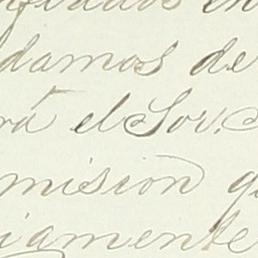 damos de
rá el Sor.
misión q
iamente